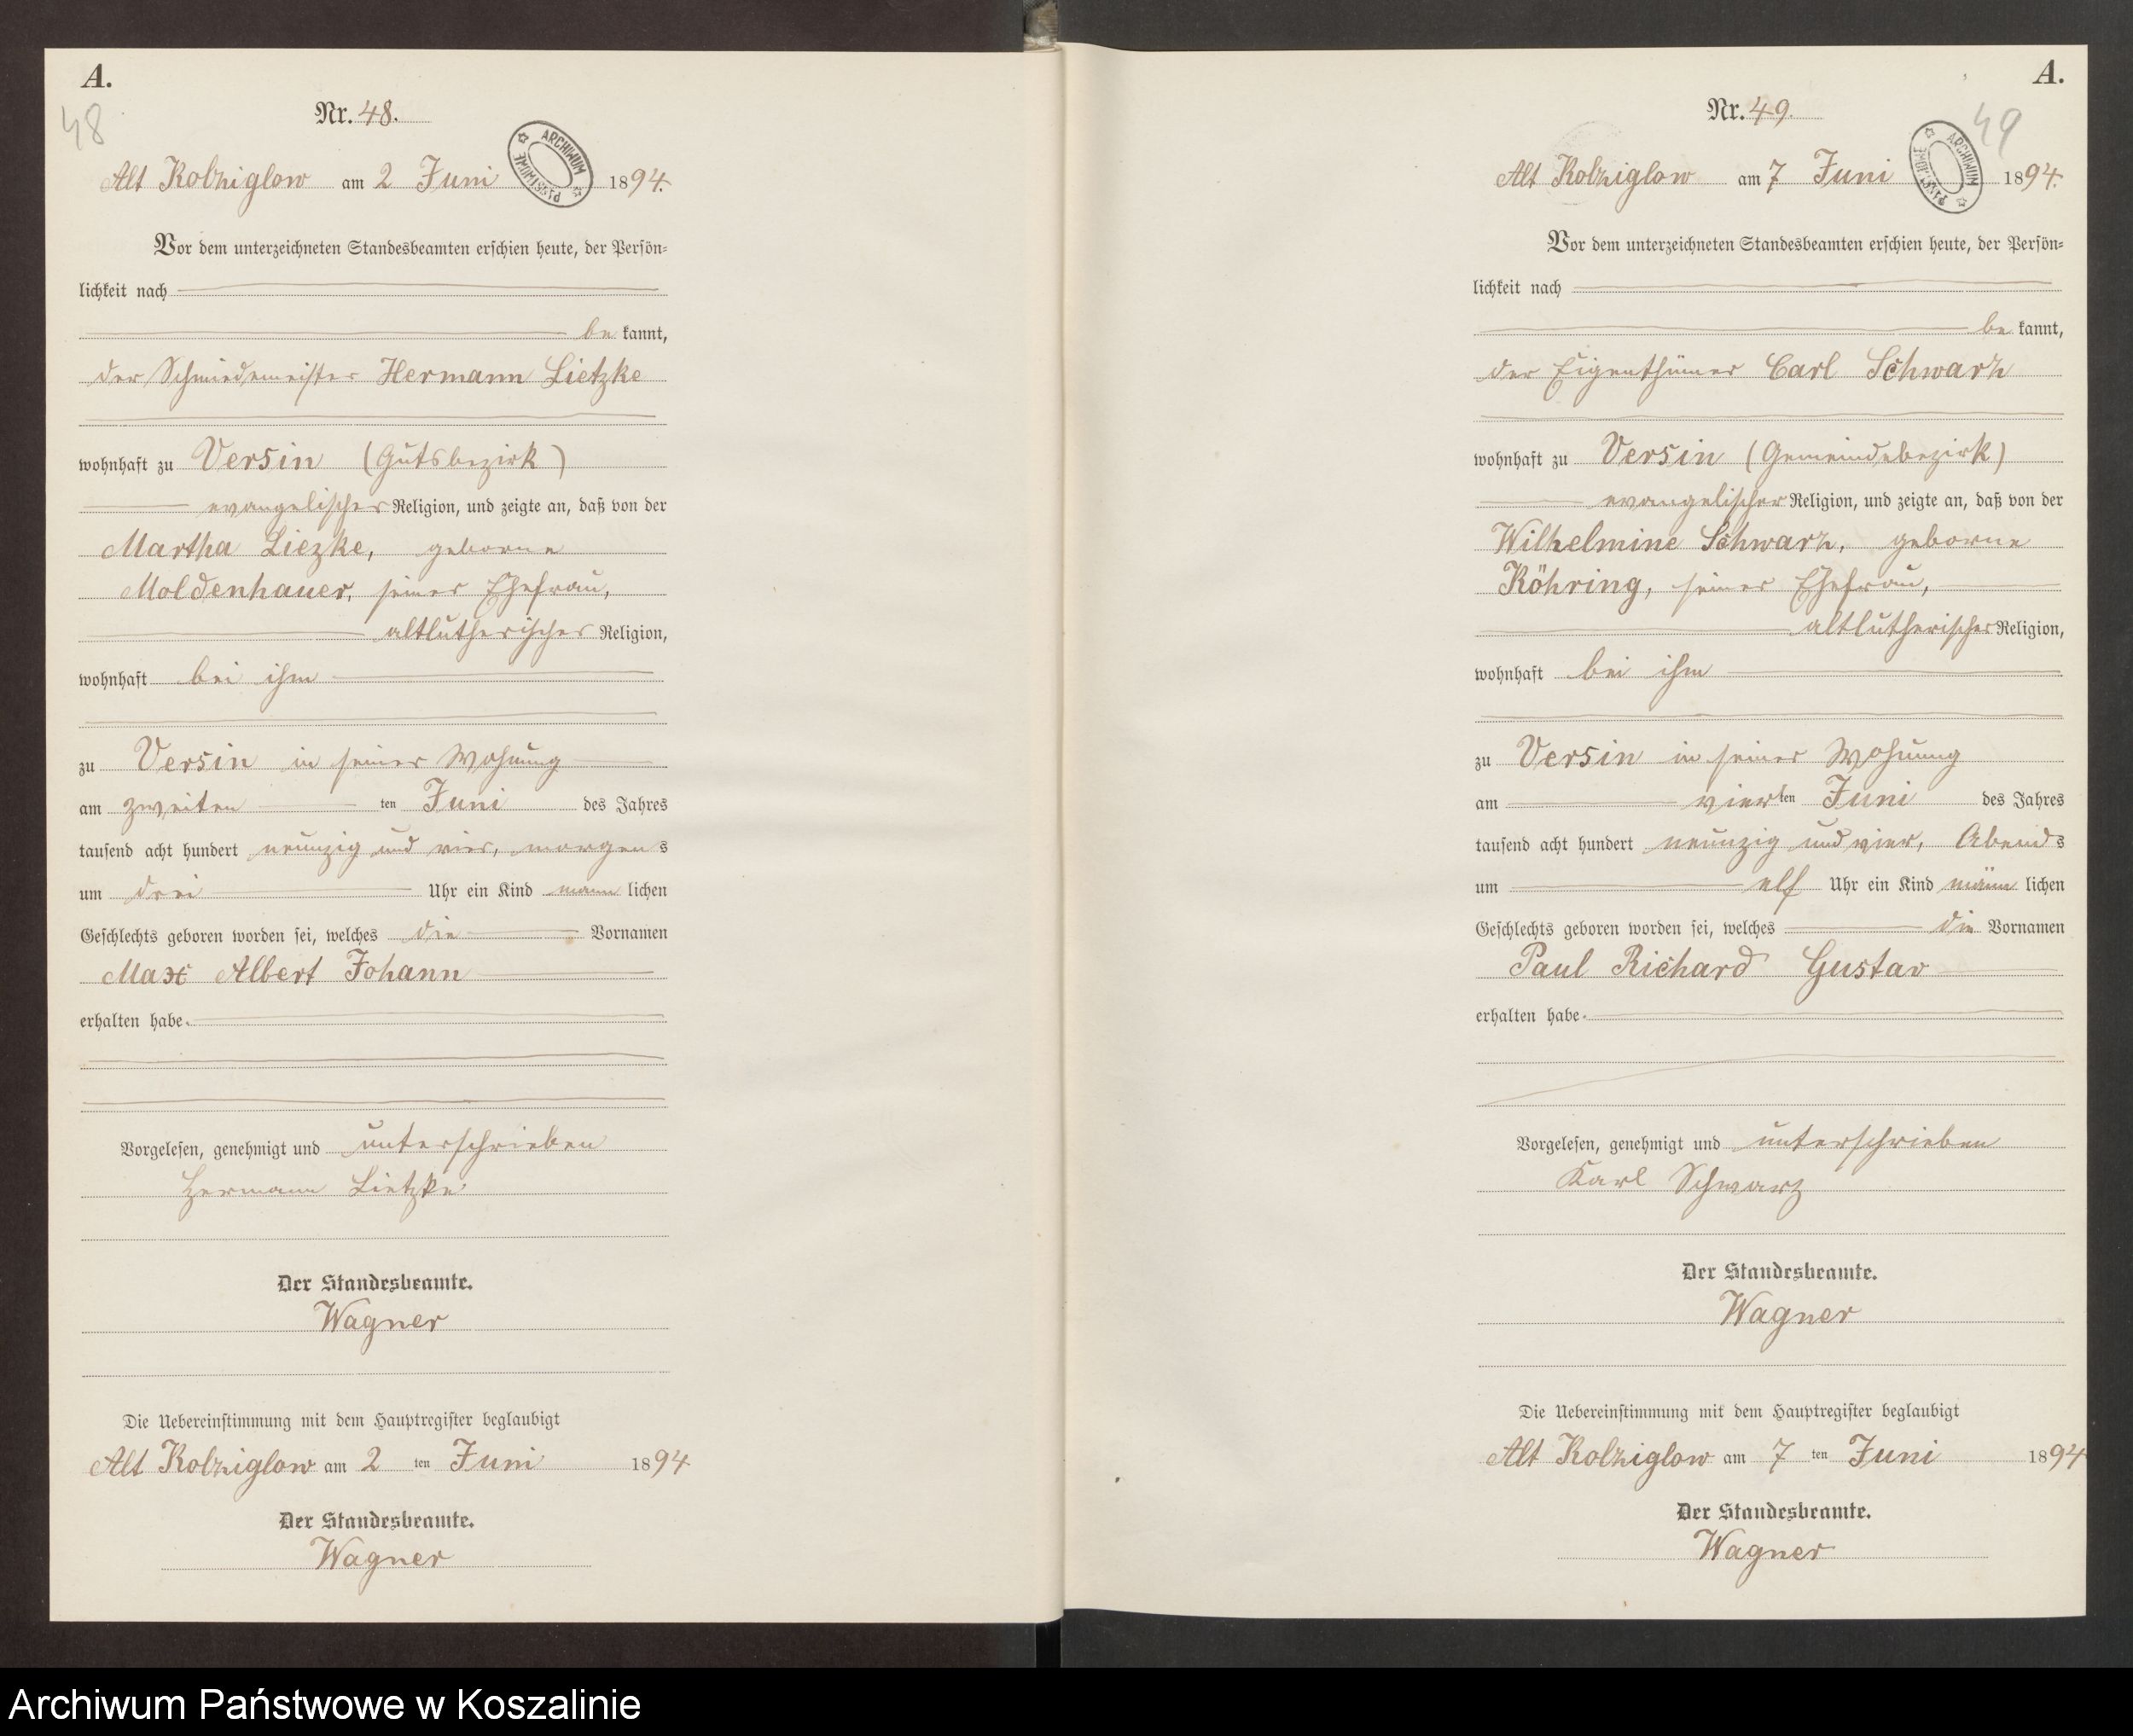 A.
48
Nr. 48.
ARCHIWUM PAŃSTWOWE
Alt Kolziglow am 2 Juni 1894.
Vor dem unterzeichneten Standesbeamten erschien heute, der Persön-
lichkeit nach
be kannt,
der Schmiedemeister Hermann Lietzke
wohnhaft zu Versin (Gutsbezirk)
evangelischer Religion, und zeigte an, daß von der
Martha Liezke, geborne
Moldenhauer, seiner Ehefrau,
altlutherischer Religion,
wohnhaft bei ihm
zu Versin in seiner Wohnung
am zweiten ten Juni des Jahres
tausend acht hundert neunzig und vier, morgens
um drei Uhr ein Kind männ lichen
Geschlechts geboren worden sei, welches die Vornamen
Max Albert Johann
erhalten habe.
Vorgelesen, genehmigt und unterschrieben
Hermann Lietzke
Der Standesbeamte.
Wagner
Die Uebereinstimmung mit dem Hauptregister beglaubigt
Alt Kolziglow am 2 ten Juni 1894
Der Standesbeamte.
Wagner
A.
49
Nr. 49.
ARCHIWUM PAŃSTWOWE
Alt Kolziglow am 7 Juni 1894.
Vor dem unterzeichneten Standesbeamten erschien heute, der Persön-
lichkeit nach
be kannt,
der Eigenthümer Carl Schwarz
wohnhaft zu Versin (Gemeindebezirk)
evangelischer Religion, und zeigte an, daß von der
Wilhelmine Schwarz, geborne
Röhring, seiner Ehefrau,
altlutherischer Religion,
wohnhaft bei ihm
zu Versin in seiner Wohnung
am vier ten Juni des Jahres
tausend acht hundert neunzig und vier, Abends
um elf Uhr ein Kind männ lichen
Geschlechts geboren worden sei, welches die Vornamen
Paul Richard Gustav
erhalten habe.
Vorgelesen, genehmigt und unterschrieben
Karl Schwarz
Der Standesbeamte.
Wagner
Die Uebereinstimmung mit dem Hauptregister beglaubigt
Alt Kolziglow am 7 ten Juni 1894
Der Standesbeamte.
Wagner
Archiwum Państwowe w Koszalinie